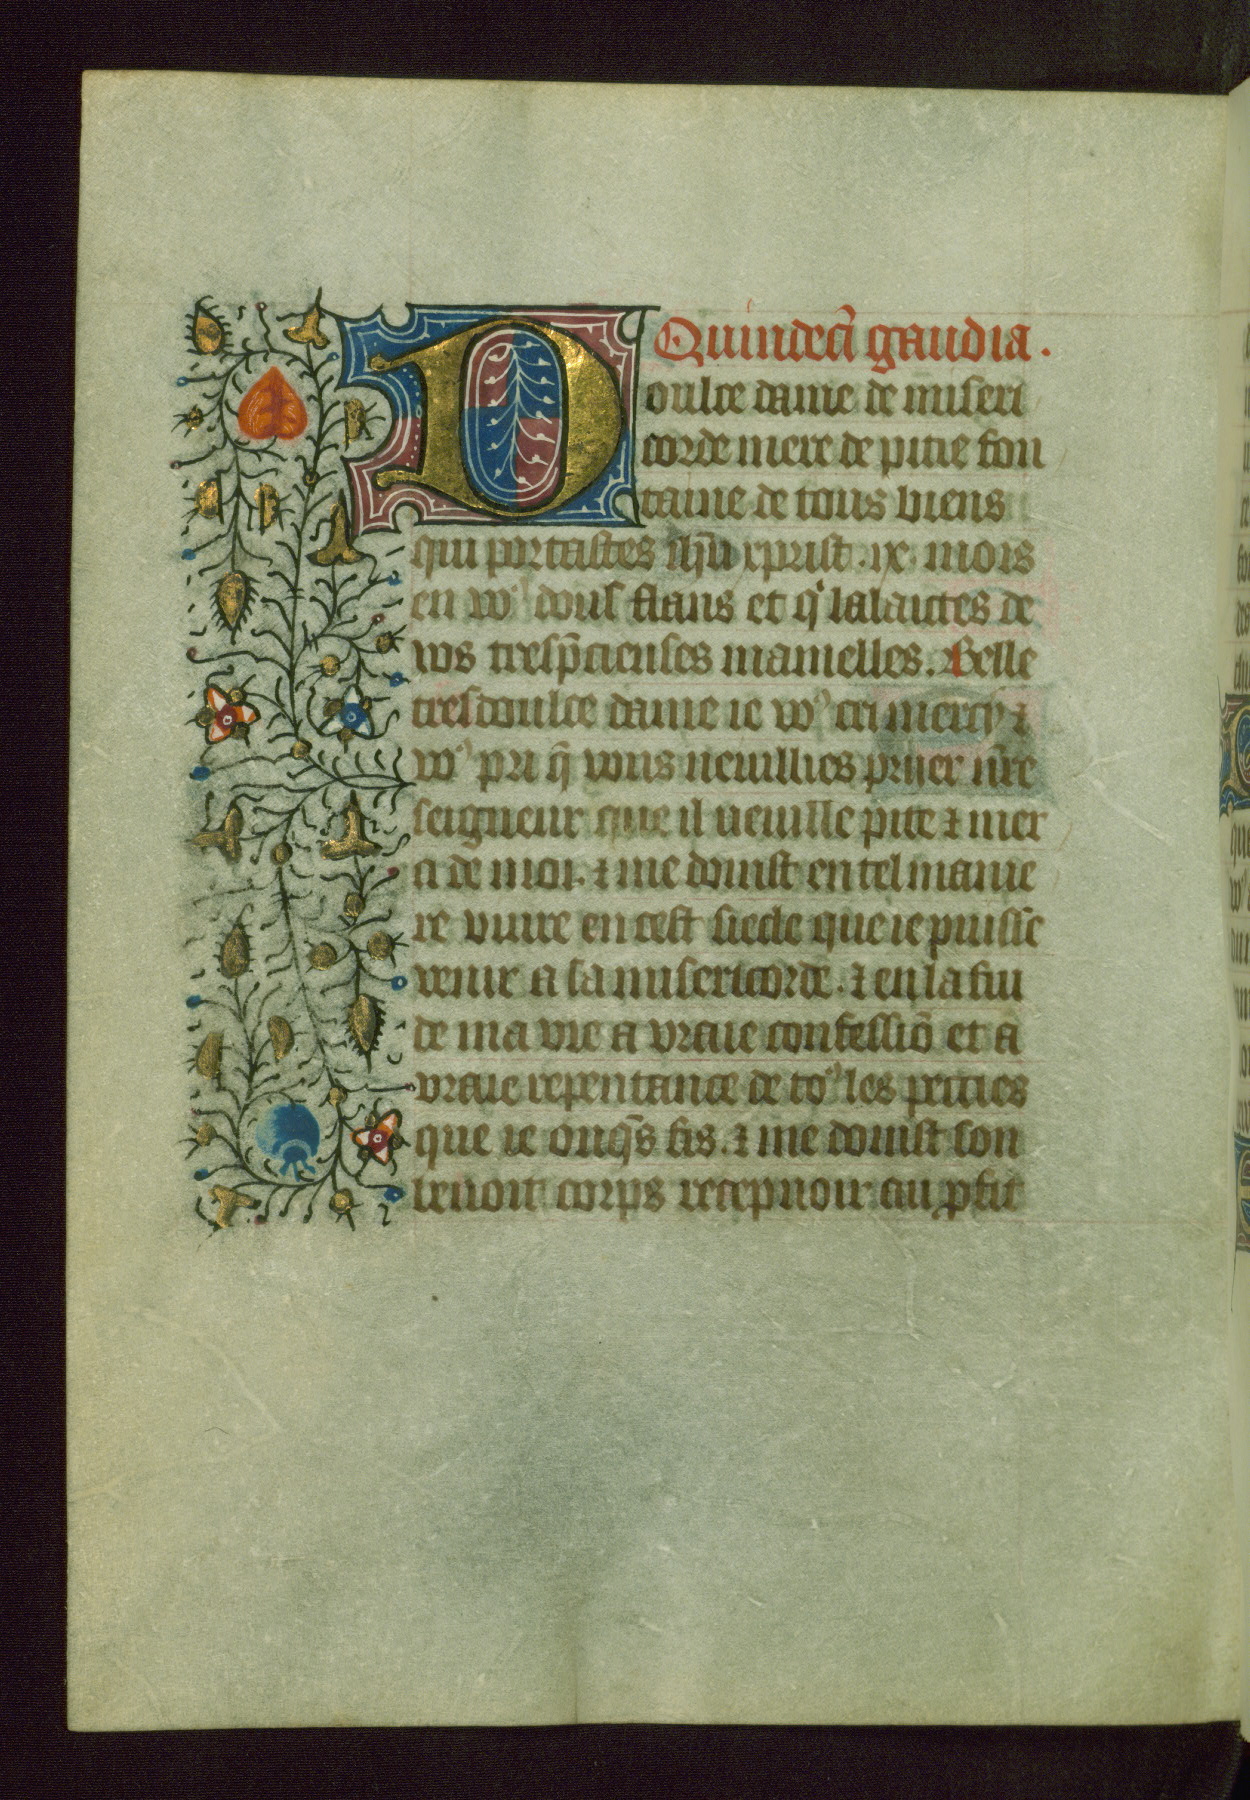 Quindecī gaudia.
Doulce dame de miseri
corde mere de pitie fon
taine de tous biens
qui portastes ihū xprist .ix. mois
en voꝰ dous flans et qͥ lalaictes de
vos tresp̄cieuses mamelles. Belle
tresdoulce dame ie voꝰ cri mercy ⁊
voꝰ pri q̄ vous veuillies prijer nr̄e
seigneur que il veuille pite ⁊ mer
ci de moi. ⁊ me doinst en tel manie
re viure en cest siecle que ie puisse
venir a sa misericorde. ⁊ en la fin
de ma vie a vraie confessiō et a
vraie repentance de toꝰ les pecies
que ie onq̄s fis. ⁊ me doinst son
benoit corps recepuoir au ꝓfit